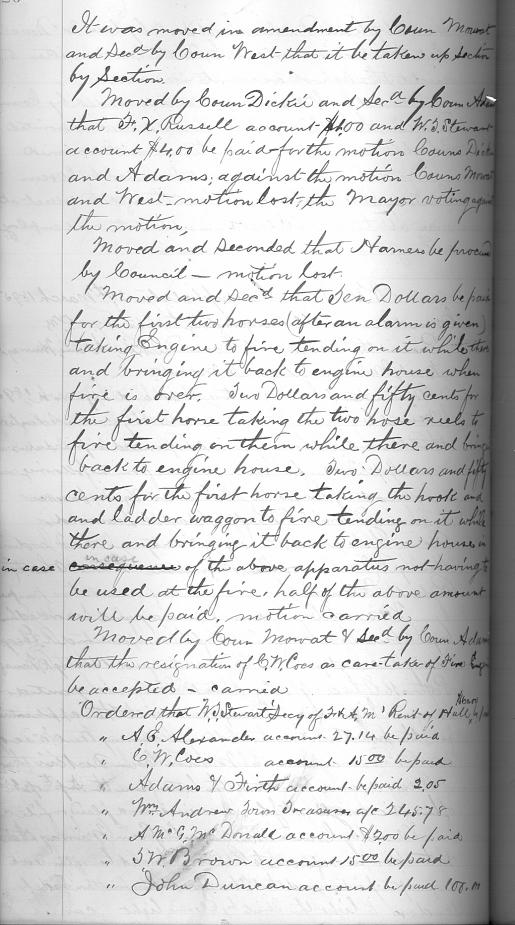 It was moved in amendment by Coun Mowat
and Secd by Coun West that it be taken up section
by Section
Moved by Coun Dickie and Secd by Coun Adams
that F. X. Russell account $4.00 and W. J. Stewart
account $4.00 be paid - for the motion Couns Dickie
and Adams; against the motion Couns Mowat
and West - motion lost - the Mayor voting against
the motion,
Moved and Seconded that Harness be procured
by Council — motion lost.
Moved and Secd that Ten Dollars be paid
for the first two horses (after an alarm is given)
taking Engine to fire tending on it while there
and bringing it back to engine house when
fire is over. Two Dollars and fifty cents for
the first horse taking the two hose reels to
fire tending on them while there and bring
back to engine house. Two Dollars and fifty
cents for the first horse taking the hook and
and ladder waggon to fire tending on it while
there and bringing it back to engine house in
in case
in case
consequence of the above apparatus not having to
be used at the fire, half of the above amount
will be paid. motion carried
Moved by Coun Mowat & Secd by Coun Adams
that the resignation of C. W. Coes as care-taker of Fire Engine
be accepted — carried
Ordered that W. J. Stewart Secy of F & A. M's Rent of Hall be paid
" A. E. Alexander account 27.14 be paid
" C. W. Coes account 15.00 be paid
" Adams & Firth account be paid 2.05
" Wm Andrew Town Treasurer a/c 245.78
" A McG. McDonald account $7.00 be paid
" J. W. Brown account 15.00 be paid
" John Duncan account be paid 100.